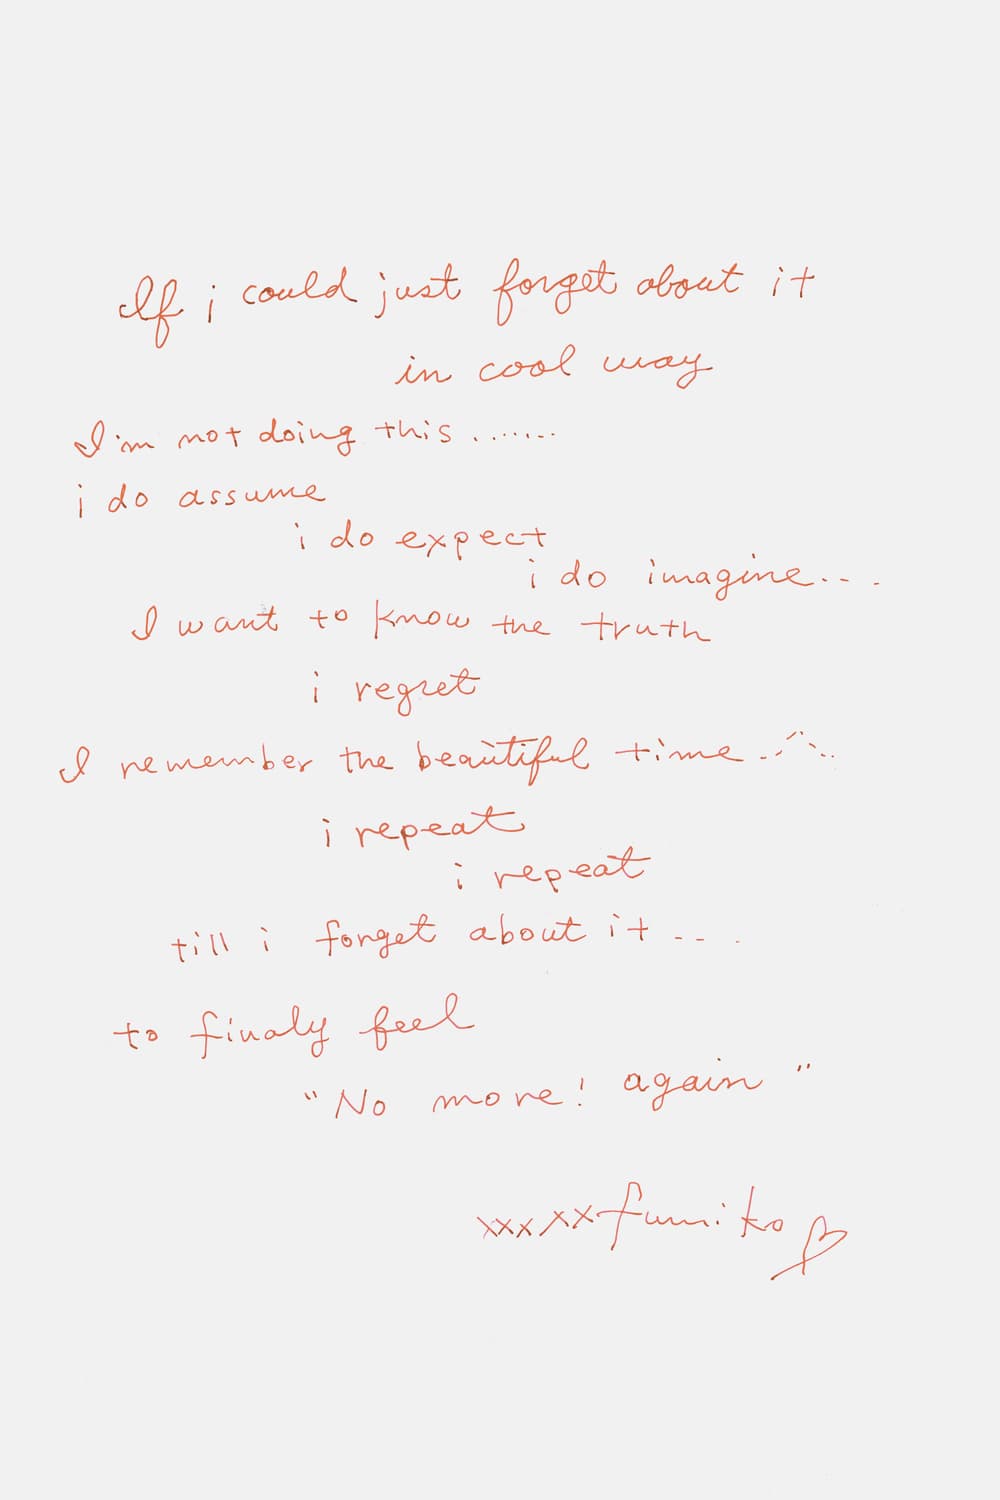 If i could just forget about it
in cool way
I'm not doing this.......
i do assume
i do expect
i do imagine...
I want to know the truth
i regret
I remember the beautiful time.......
i repeat
i repeat
till i forget about it ...
to finaly feel
"No more! again"
xxxxx fumiko ♡